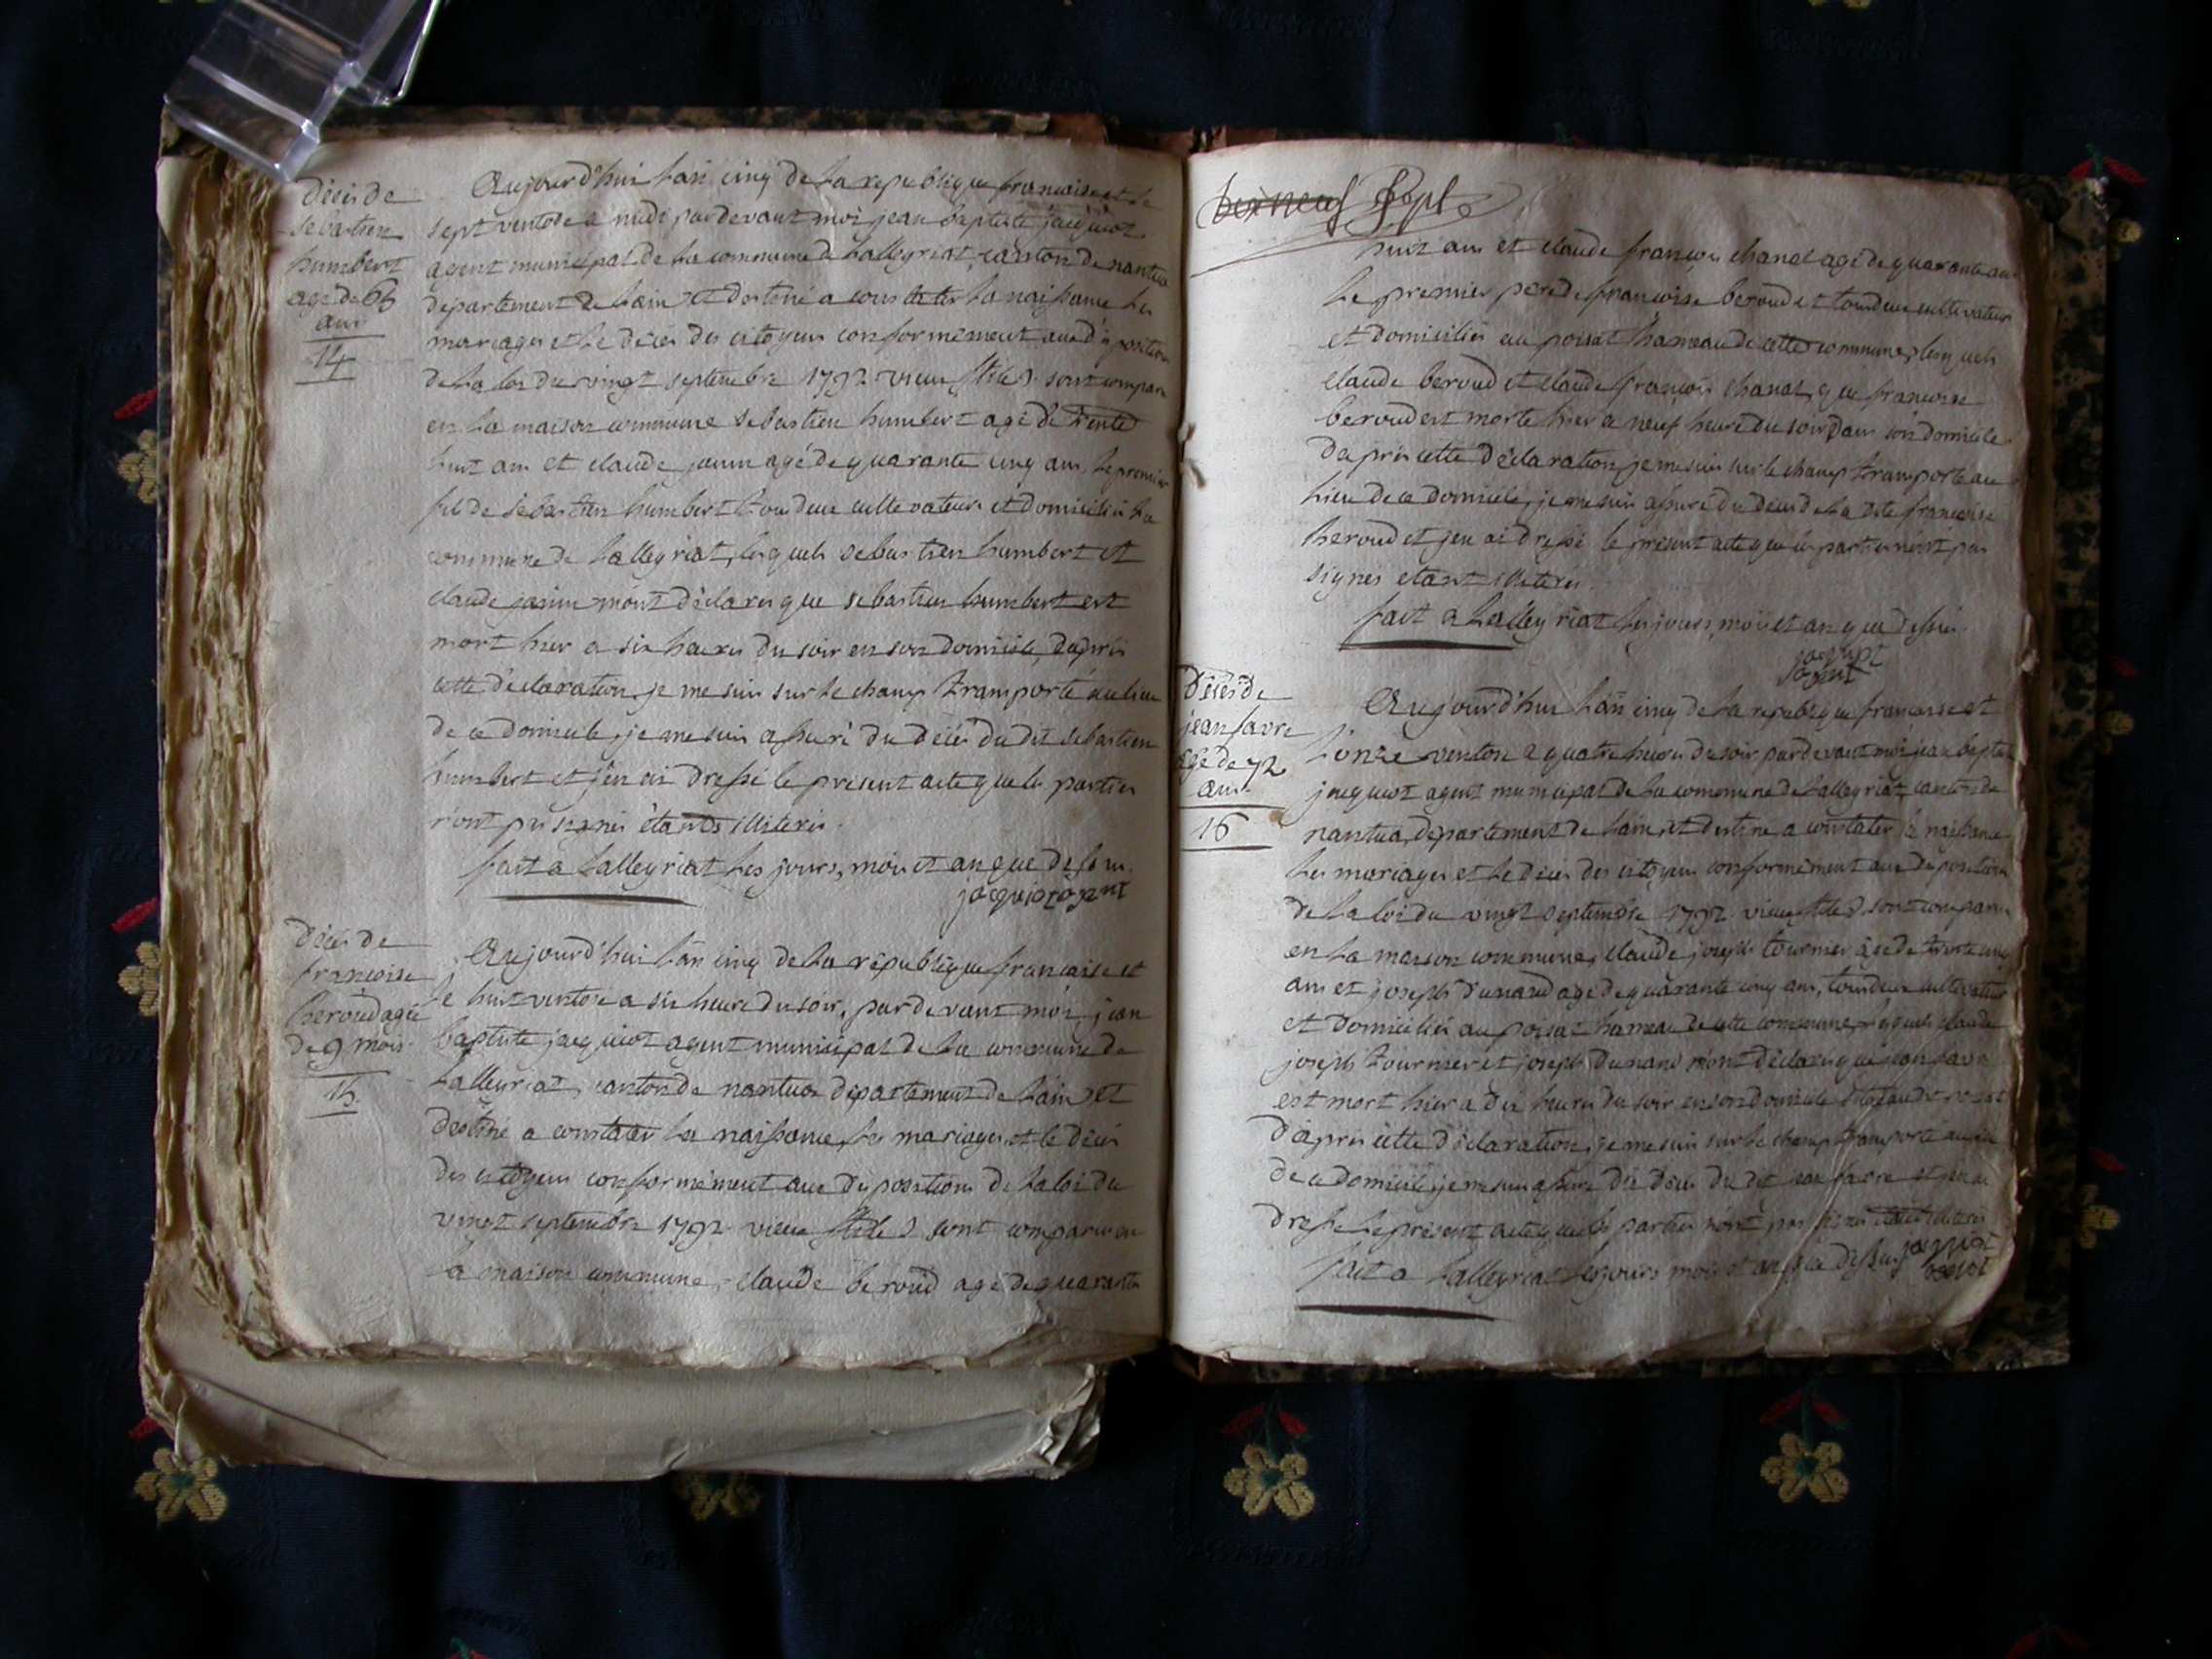 Décès de
sebastien
humbert
agé de 66
ans
14
Aujourd'hui Lan cinq de la republique francaise et le
sept ventose a midi pardevant moi jean baptiste jacquiot
agent municipal de la commune de Lalleyriat, canton de nantua
departement de Lain et destiné a constater La naissance Les
mariages et le décès des citoyens conformement aux dispositions
de la loi du vingt septembre 1792 vieux stile) sont comparu
en La maison commune sebastien humbert agé de trente
huit ans et claude jantin agé de quarante cinq ans, Le premier
fils de sebastien humbert tous deux cultivateurs et domiciliés La
commune de Lalleyriat, lesquels sebastien humbert et
claude mont déclarés que sebastien humbert est
mort hier a six heures du soir en son domicile, dapres
cette déclaration, je me suis sur le champ transporté au lieu
de ce domicile, je me suis assuré du décès du dit sebastien
humbert et j'en ai dressé le present acte que les parties
n'ont pas signés étants illiterés.
fait a Lalleyriat Les jours, mois et an que dessus.
jacquiot agent
Décès de
francoise
beroud agée
de 9 mois
15.
Aujourd'hui Lan cinq de la république francaise et
Le huit ventose a six heure du soir, pardevant moi, jean
baptiste jacquiot agent municipal de La commune de
Lalleyriat, canton de nantua departement de Lain et
destiné a constater La naissance, Les mariages et le décès
des citoyens conformement aux dispositions de la loi du
vingt septembre 1792 vieux stile) sont comparu en
La maison commune, claude beroud agé de quarante
dix neuf Sept
huit ans et claude françois chanal agé de quarante ans
Le premier pere de francoise beroud et tous deux cultivateurs
et domiciliés au poisat hameau de cette commune, lesquels
claude beroud et claude françois chanal, que francoise
beroud est morte hier a neuf heure du soir dans son domicile
Dapris cette déclaration, je me suis sur le champ transporté au
Lieu de ce domicile, je me suis assuré du décès de La dite francoise
beroud et j'en ai dressé le présent acte que les parties n'ont pas
signés etant illiterés.
fait a Lalleyriat Les jours, mois et an que dessus.
jacquiot
agent
Décès de
jean favre
agé de 72
ans.
16
Aujourd'hui Lan cinq de la republique francaise et
Lonze ventose a quatre heures du soir pardevant moi jean baptiste
jacquiot agent municipal de la commune de Lalleyriat, canton de
nantua, departement de Lain, et destiné a constater la naissance
Les mariages et Le décès des citoyens conformement aux dispositions
de La loi du vingt septembre 1792 vieux stile) sont comparu
en La maison commune, claude joseph tournier agé de trente cinq
ans et joseph dunand agé de quarante cinq ans, tous deux cultivateurs
et domiciliés au poisat hameau de cette commune, lesquels claude
joseph tournier et joseph dunand m'ont déclarés que jean favre
est mort hier a dix heures du soir en son domicile
D'après cette déclaration, je me suis sur le champ transporté au lieu
de ce domicile, je me suis assuré du décès du dit jean favre et jen ai
dressé Le present acte que les parties n'ont pas signés etant illiterés
fait a Lalleyriat Les jours mois et an que dessus jacquiot
agent